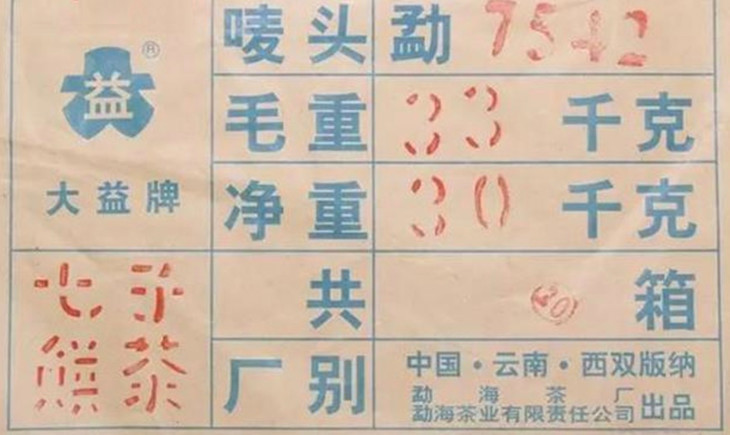 益®
大益牌
七子
餅茶
唛头 勐 7542
毛重 33 千克
净重 30 千克
共 箱
厂别 中国·云南·西双版纳
勐海茶厂
勐海茶业有限责任公司 出品